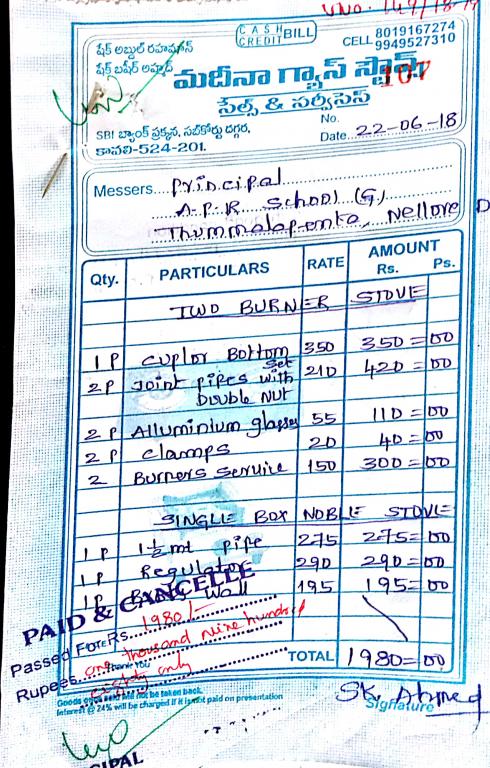 V.No. 149/18-19
CASH BILL
CREDIT
షేక్ అబ్దుల్ రహమాన్
షేక్ బషీర్ అహ్మద్
CELL 8019167274
9949527310
మదీనా గ్యాస్ స్టౌవ్స్
107
సేల్స్ & సర్వీసెస్
SBI బ్యాంక్ ప్రక్కన, సబ్‌కోర్టు దగ్గర,
కావలి-524-201.
No.
Date...22-06-18
Messers....Principal
A.P.R School (G)
Thummalaponta, Nellore D
Qty. PARTICULARS RATE AMOUNT
Rs. Ps.
TWO BURNER STOVE
1 P Cuplor Bottom 350 350=00
2 P Joint pipes Set with 210 420=00
Double Nut
2 P Alluminium glasses 55 110=00
2 P Clamps 20 40=00
2 Burners Service 150 300=00
SINGLE BOX NOBLE STOVE
1 P 1½mt pipe 275 275=00
1 P Regulator 290 290=00
1 P Wall 195 195=00
PAID & CANCELLE
Passed For Rs. 1980/-
Rupees one thousand nine hundred
eighty only
Thank You
TOTAL 1980=00
Goods once sold will not be taken back.
Interest @ 24% will be charged if it is not paid on presentation
SK. Ahmed
Signature
CIPAL